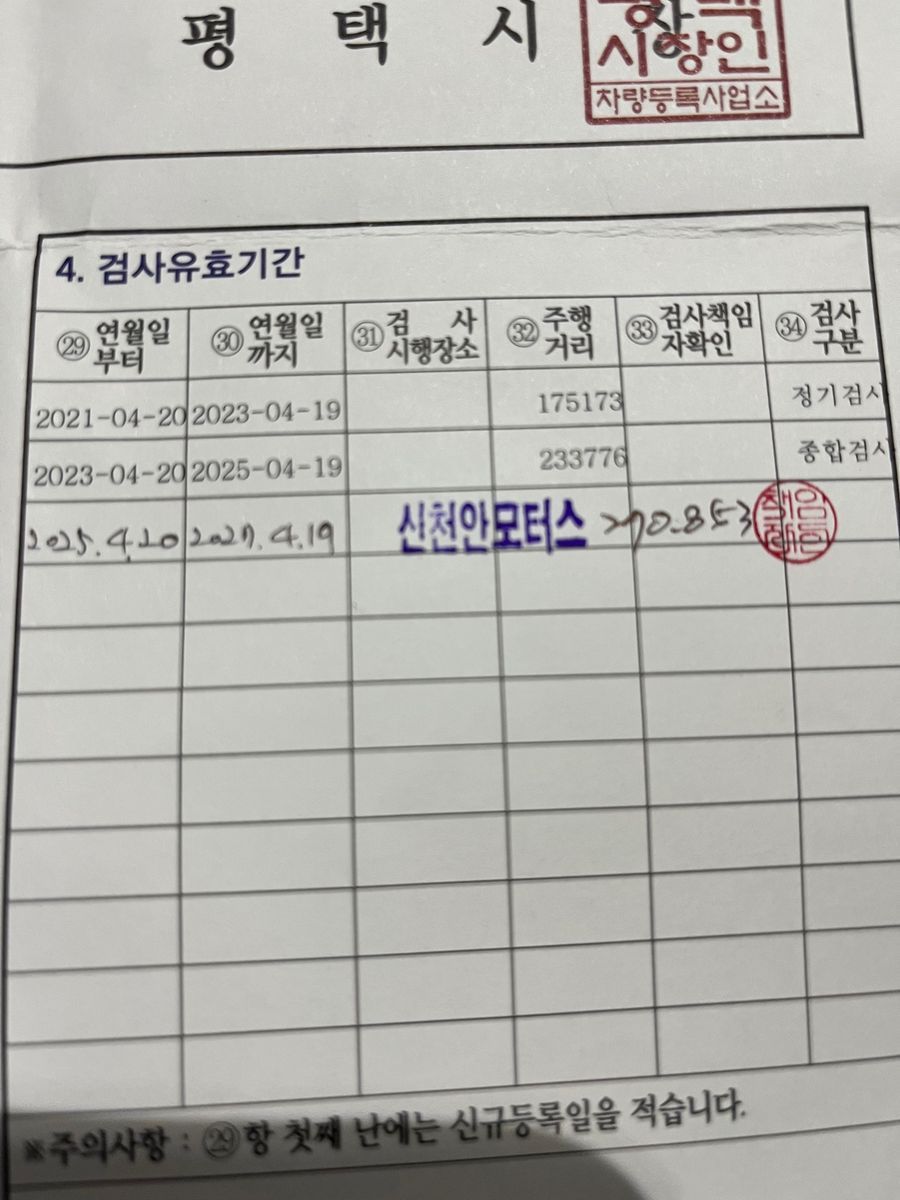 평 택 시
시장인
차량등록사업소
4. 검사유효기간
㉙ 연월일 부터 ㉚ 연월일 까지 ㉛ 검 사 시행장소 ㉜ 주행 거리 ㉝ 검사책임 자확인 ㉞ 검사 구분
2021-04-20 2023-04-19 175173 정기검사
2023-04-20 2025-04-19 233776 종합검사
2025.4.20 2027.4.19 신천안모터스 270.853
※주의사항 : ㉙항 첫째 난에는 신규등록일을 적습니다.